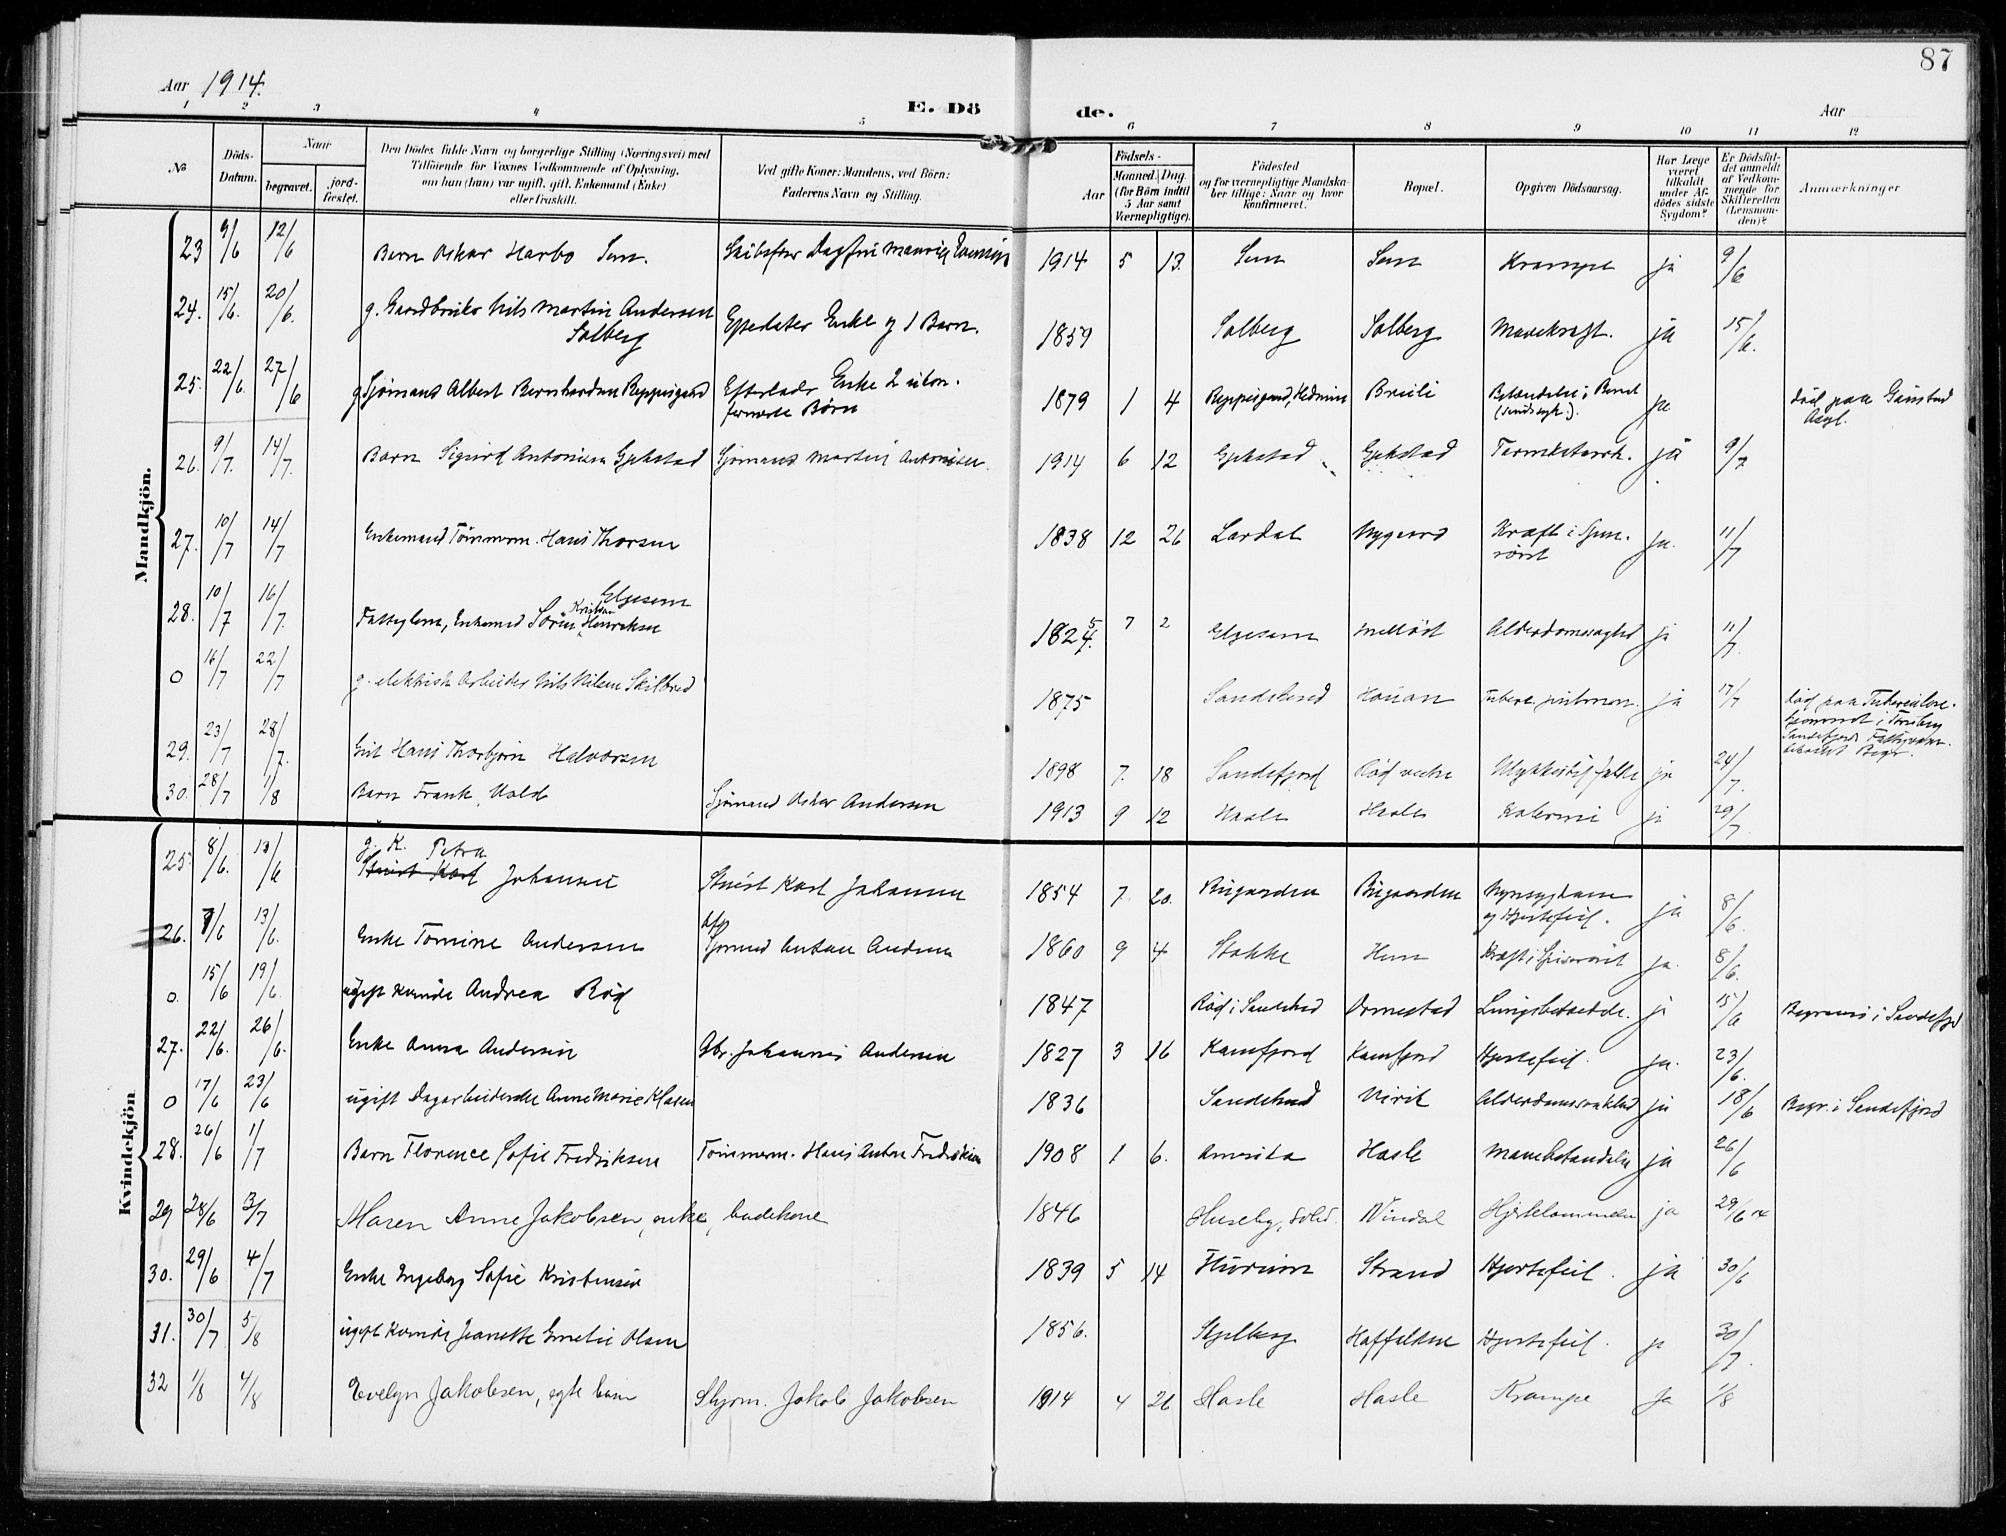 87
Aar 1914.
E. Dö de.
Aar
1 2 3 4 5 6 7 8 9 10 11 12
No
Döds-Datum.
Naar
begravet.
jord-fæstet.
Den Dödes fulde Navn og borgerlige Stilling (Næringsvei) med
Tilföiende for Voxnes Vedkommende af Oplysning,
om han (hun) var ugift, gift, Enkemand (Enke)
eller fraskilt.
Ved gifte Koner: Mandens, ved Börn:
Faderens Navn og Stilling.
Födsels-
Aar
Maaned. Dag.
(for Börn indtil
5 Aar samt
Værnepligtige).
Födested
og for værnepligtige Mandska-
ber tillige: Naar og hvor
konfirmeret.
Bopæl.
Opgiven Dödsaarsag.
Har Læge
været
tilkaldt
under Af-
dödes sidste
Sygdom?
Er Dödsfal-
det anmeldt
af Vedkom-
mende for
Skifteretten
(Lensman-
den)?
Anmærkninger
Mandkjön.
23 9/6 12/6 Barn Oskar Harbo Sem. 1914 5 13. Sem Sem Krampe ja 9/6
24. 15/6. 20/6. g. Gaardbruker Nils Martin Andersen Solberg Efterlater Enke og 1 Barn. 1859 Solberg Solberg Mavekræft. ja 15/6.
25. 22/6. 27/6 g Sjømand Albert Bernhardsen Reppesgaard Efterlader Enke 2 uken. forsørgede Børn 1879 1 4 Breili ja død paa Gaustad Asyl.
26. 9/7. 14/7. Barn Sigurd Antonisen Gjekstad Sjømand Martin Antonisen. 1914 6 12 Gjekstad Gjekstad Tarmkatarrh. ja 9/7
27. 10/7 14/7 Enkemand Tømmerm. Hans Thorsen 1838 12 26 Lardal Nygaard Kræft i Spiserøret ja. 11/7
28. 10/7 16/7. Enkemd Søren Kristian Henriksen Elgesem 1824 5 7 2 Elgesem Alderdomssvaghed ja 11/7.
0 16/7 22/7 g. elektrisk Arbeider Nils Nilsen Skilbred 1875 Sandeherred ja 17/7 død paa Tuberculose-hjemmet i Tønsberg
29. 23/7 28/7. Hans Thorbjørn Halvorsen 1898 7. 18 Sandefjord ja 24/7.
30. 28/7 1/8 Barn Frank Vald Sjømand Oskar Andersen 1913 9 12 Hasle Hasle ja 29/7
Kvindekjön
25 8/6. 13/6 g. K. Petra Johansen Karl Johansen 1854 7. 20. Bugaarden Bugaarden Nyresygdom og Hjertefeil. ja 8/6.
26. 7/6 13/6. Enke Tomine Andersen Afd Sjømand Anton Andersen 1860 9 4 Stokke Hem Kræft i Spiserøret ja. 8/6.
0. 15/6 19/6. ugift Kvinde Andrea Rød 1847 Rød i Sandeherred Ormestad Lungebetændelse. ja 15/6 Begraves i Sandefjord
27. 22/6. 26/6. Enke Anna Andersen Gbr. Johannes Andersen 1827 3 16 Kamfjord Kamfjord Hjertefeil. ja. 23/6.
0 17/6 23/6 ugift Dagarbeiderske Anne Marie Klasen 1836 Sandeherred Virik Alderdomssvakhed ja 18/6 Begr. i Sandefjord
28. 26/6 1/7 Barn Florence Sofie Fredriksen Tømmerm. Hans Anton Fredriksen 1908 1 6. Amerika Hasle Mavebetændelse ja 26/6
29 28/6 3/7 Maren Anne Jakobsen, enke, badekone 1846 Huseby, Vindal Hjertelammelse ja 29/6 14
30. 29/6 4/7 Enke Ingeborg Sofie Kristensen 1839 5 14 Hurum Strand Hjertefeil. ja 30/6
31. 30/7 5/8 ugift Kvinde Jeanette Emelie Olsen 1856. Skjelberg Haffalden Hjertefeil. ja 30/7.
32 1/8 4/8 Evelyn Jakobsen, egte barn Styrm. Jakob Jakobsen 1914 4 26 Hasle Hasle Krampe ja 1/8